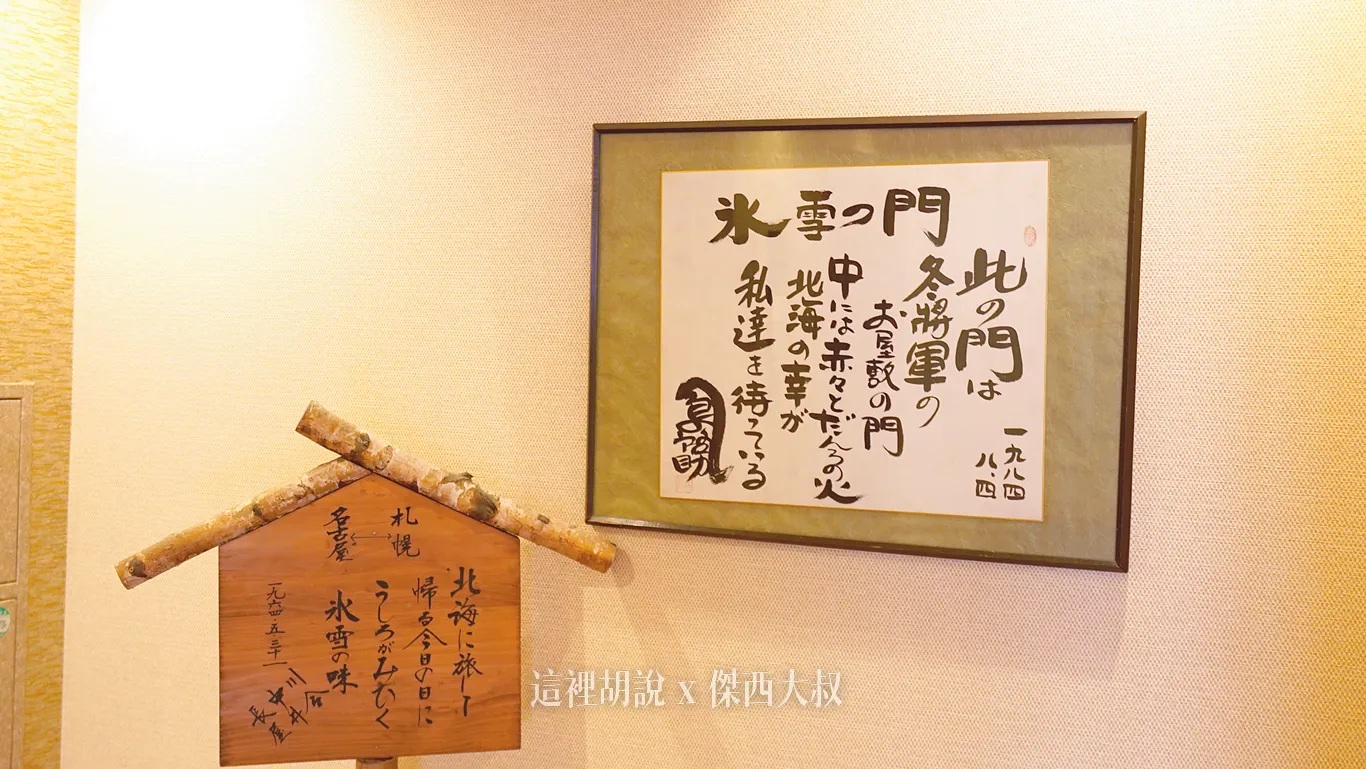 氷雪の門
此の門は
冬將軍の
お屋敷の門
中には赤々とだんろの火
北海の幸が
私達を待っている
一九八四
八、四
札幌
名古屋
北海に旅して
帰る今日の日に
うしろがみひく
氷雪の味
一九六四・五・三十一
這裡胡說 x 傑西大叔